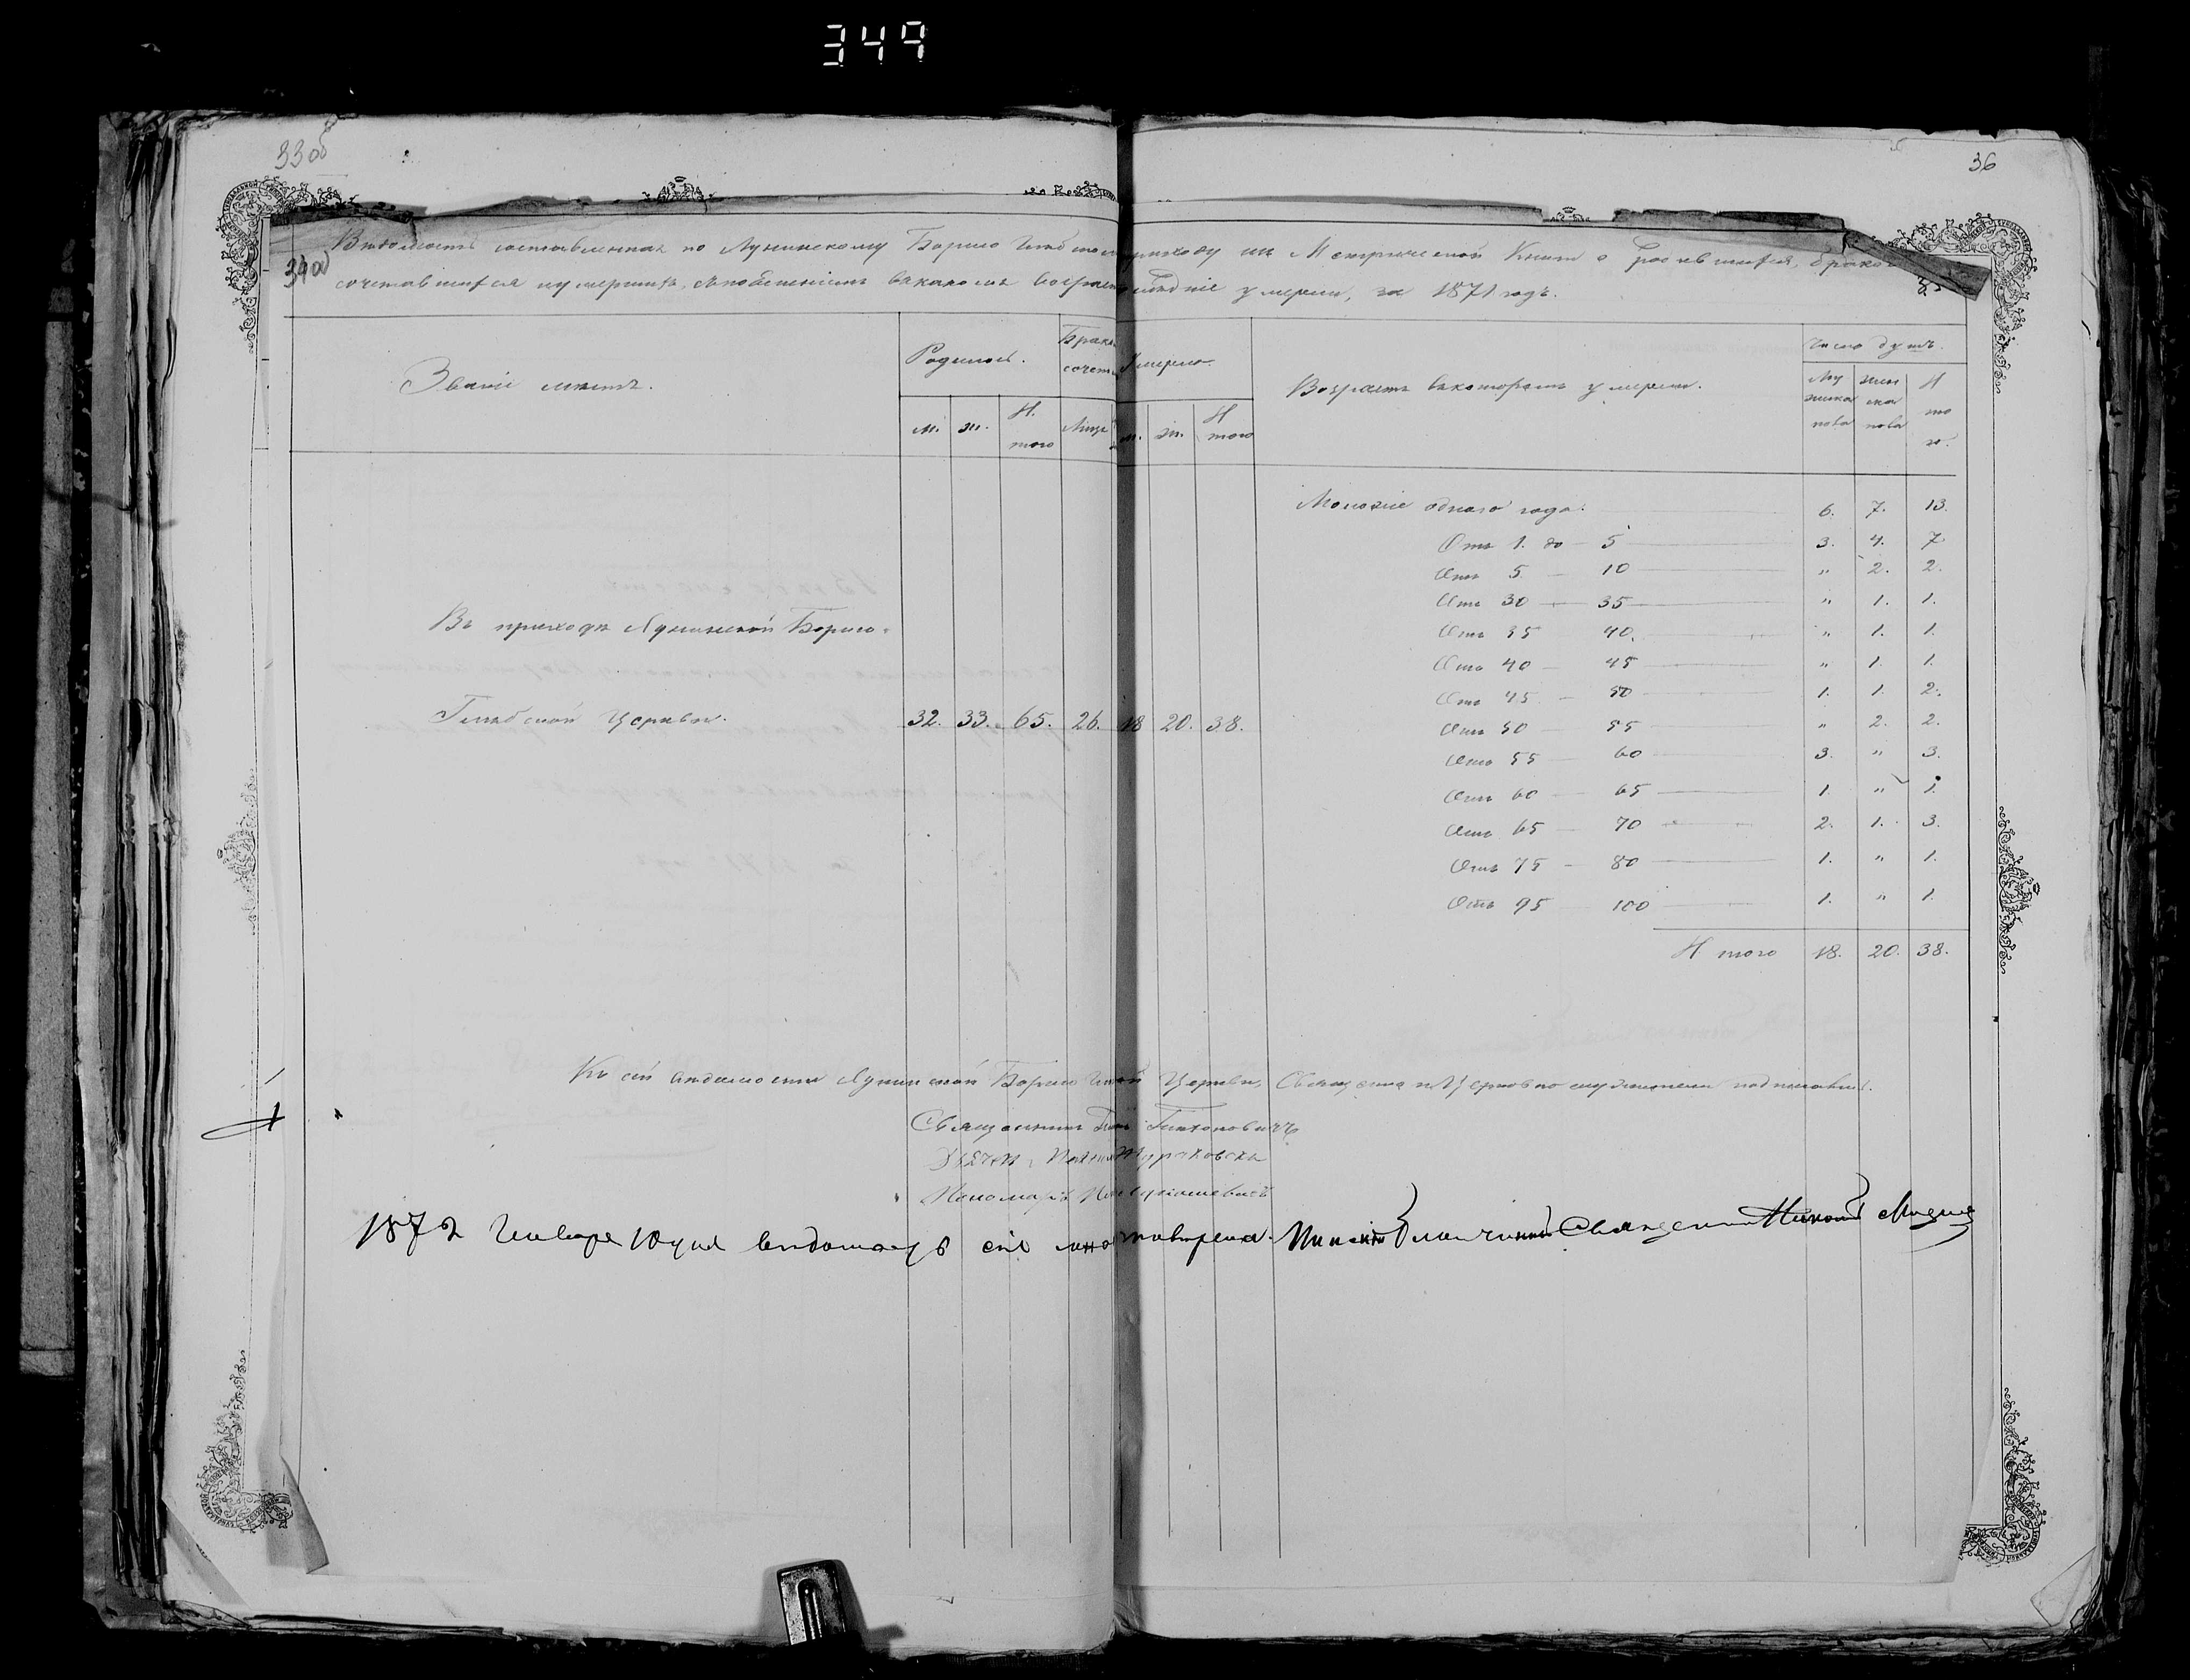 349
33 об
36
34 об
Вѣдомость составленная по Лунинскому Борисо Глѣбскому приходу изъ Метрической Книги о родившихся, бракомъ
сочетавшихся и умершихъ, съ поясненіемъ въ какомъ возрастѣ послѣдніе умерли, за 1871 годъ.
Званіе мѣстъ.
Родилось.
Брако
сочет
Умерло.
Возрастъ въ которомъ умерли.
Число душъ.
м. ж. Итого Лицъ м. ж. Итого
Му жска пола жен ска пола И то го.
Моложе одного года. 6. 7. 13.
Отъ 1. до 5 3. 4. 7
Отъ 5 10 " 2. 2.
Отъ 30 35 " 1. 1.
Отъ 35 40. " 1. 1.
Отъ 40 45 " 1. 1.
Отъ 45 50 1. 1. 2.
Отъ 50 55 " 2. 2.
Отъ 55 60 3. " 3.
Отъ 60 65 1. " 1.
Отъ 65 70 2. 1. 3.
Отъ 75 80 1. " 1.
Отъ 95 100 1. " 1.
Итого 18. 20. 38.
Въ приходѣ Лунинской Борисо-
Глѣбской Церкви. 32. 33. 65. 26. 18 20. 38.
Къ сей вѣдомости Лунинской Борисо Церкви, Священно и Церковно служители подписались.
Священникъ
Дьячекъ
Пономарь
1872 Января 10 дня вѣдомость сію Благочинный Священникъ